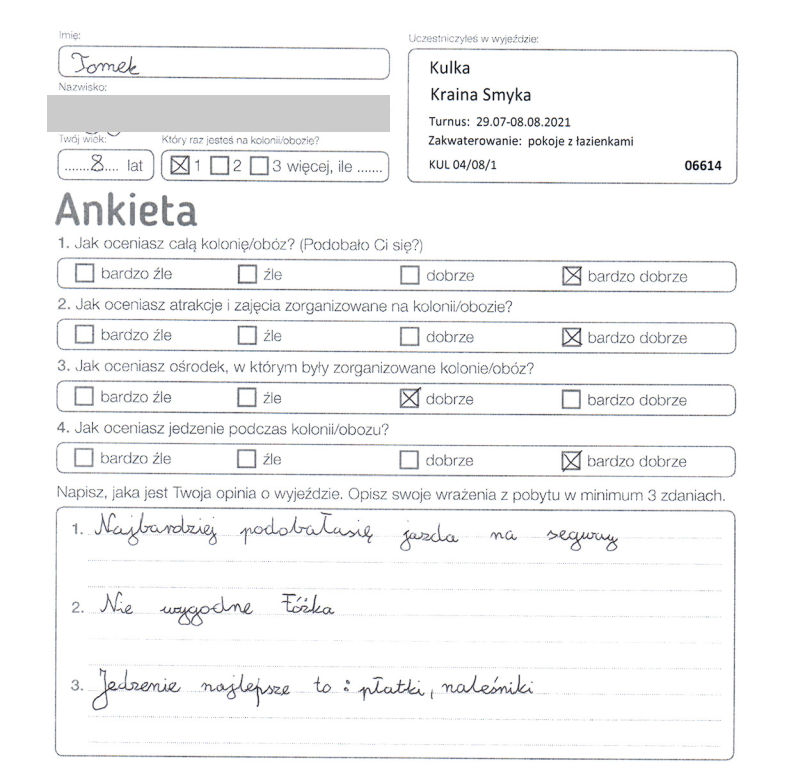 Imię:
Tomek
Nazwisko:
Twój wiek:
Który raz jesteś na kolonii/obozie?
.......8.... lat
1 2 3 więcej, ile .......
Uczestniczyłeś w wyjeździe:
Kulka
Kraina Smyka
Turnus: 29.07-08.08.2021
Zakwaterowanie: pokoje z łazienkami
KUL 04/08/1 06614
Ankieta
1. Jak oceniasz całą kolonię/obóz? (Podobało Ci się?)
bardzo źle źle dobrze bardzo dobrze
2. Jak oceniasz atrakcje i zajęcia zorganizowane na kolonii/obozie?
bardzo źle źle dobrze bardzo dobrze
3. Jak oceniasz ośrodek, w którym były zorganizowane kolonie/obóz?
bardzo źle źle dobrze bardzo dobrze
4. Jak oceniasz jedzenie podczas kolonii/obozu?
bardzo źle źle dobrze bardzo dobrze
Napisz, jaka jest Twoja opinia o wyjeździe. Opisz swoje wrażenia z pobytu w minimum 3 zdaniach.
1. Najbardziej podobałasię jazda na seguuy
2. Nie wygodne łóżka
3. Jedzenie najlepsze to : płatki, naleśniki